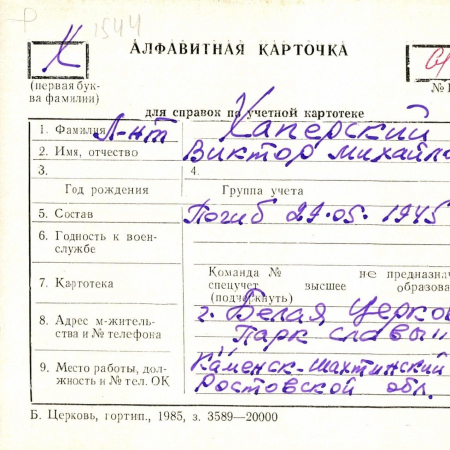 1544
Х
АЛФАВИТНАЯ КАРТОЧКА
(первая бук-
ва фамилии)
№
для справок по учетной картотеке
1. Фамилия Л-нт Хаперский
2. Имя, отчество Виктор Михайло
3.
4.
Год рождения
Группа учета
5. Состав Погиб 29.05.1945
6. Годность к воен-
службе
Команда № не предназнач
7. Картотека
спецучет высшее образова
(подчеркнуть)
8. Адрес м-житель-
ства и № телефона
г. Белая Церковь
Парк славы"
9. Место работы, дол-
жность и № тел. ОК
Каменск-Шахтинский
Ростовской обл.
Б. Церковь, гортип., 1985, з. 3589—20000